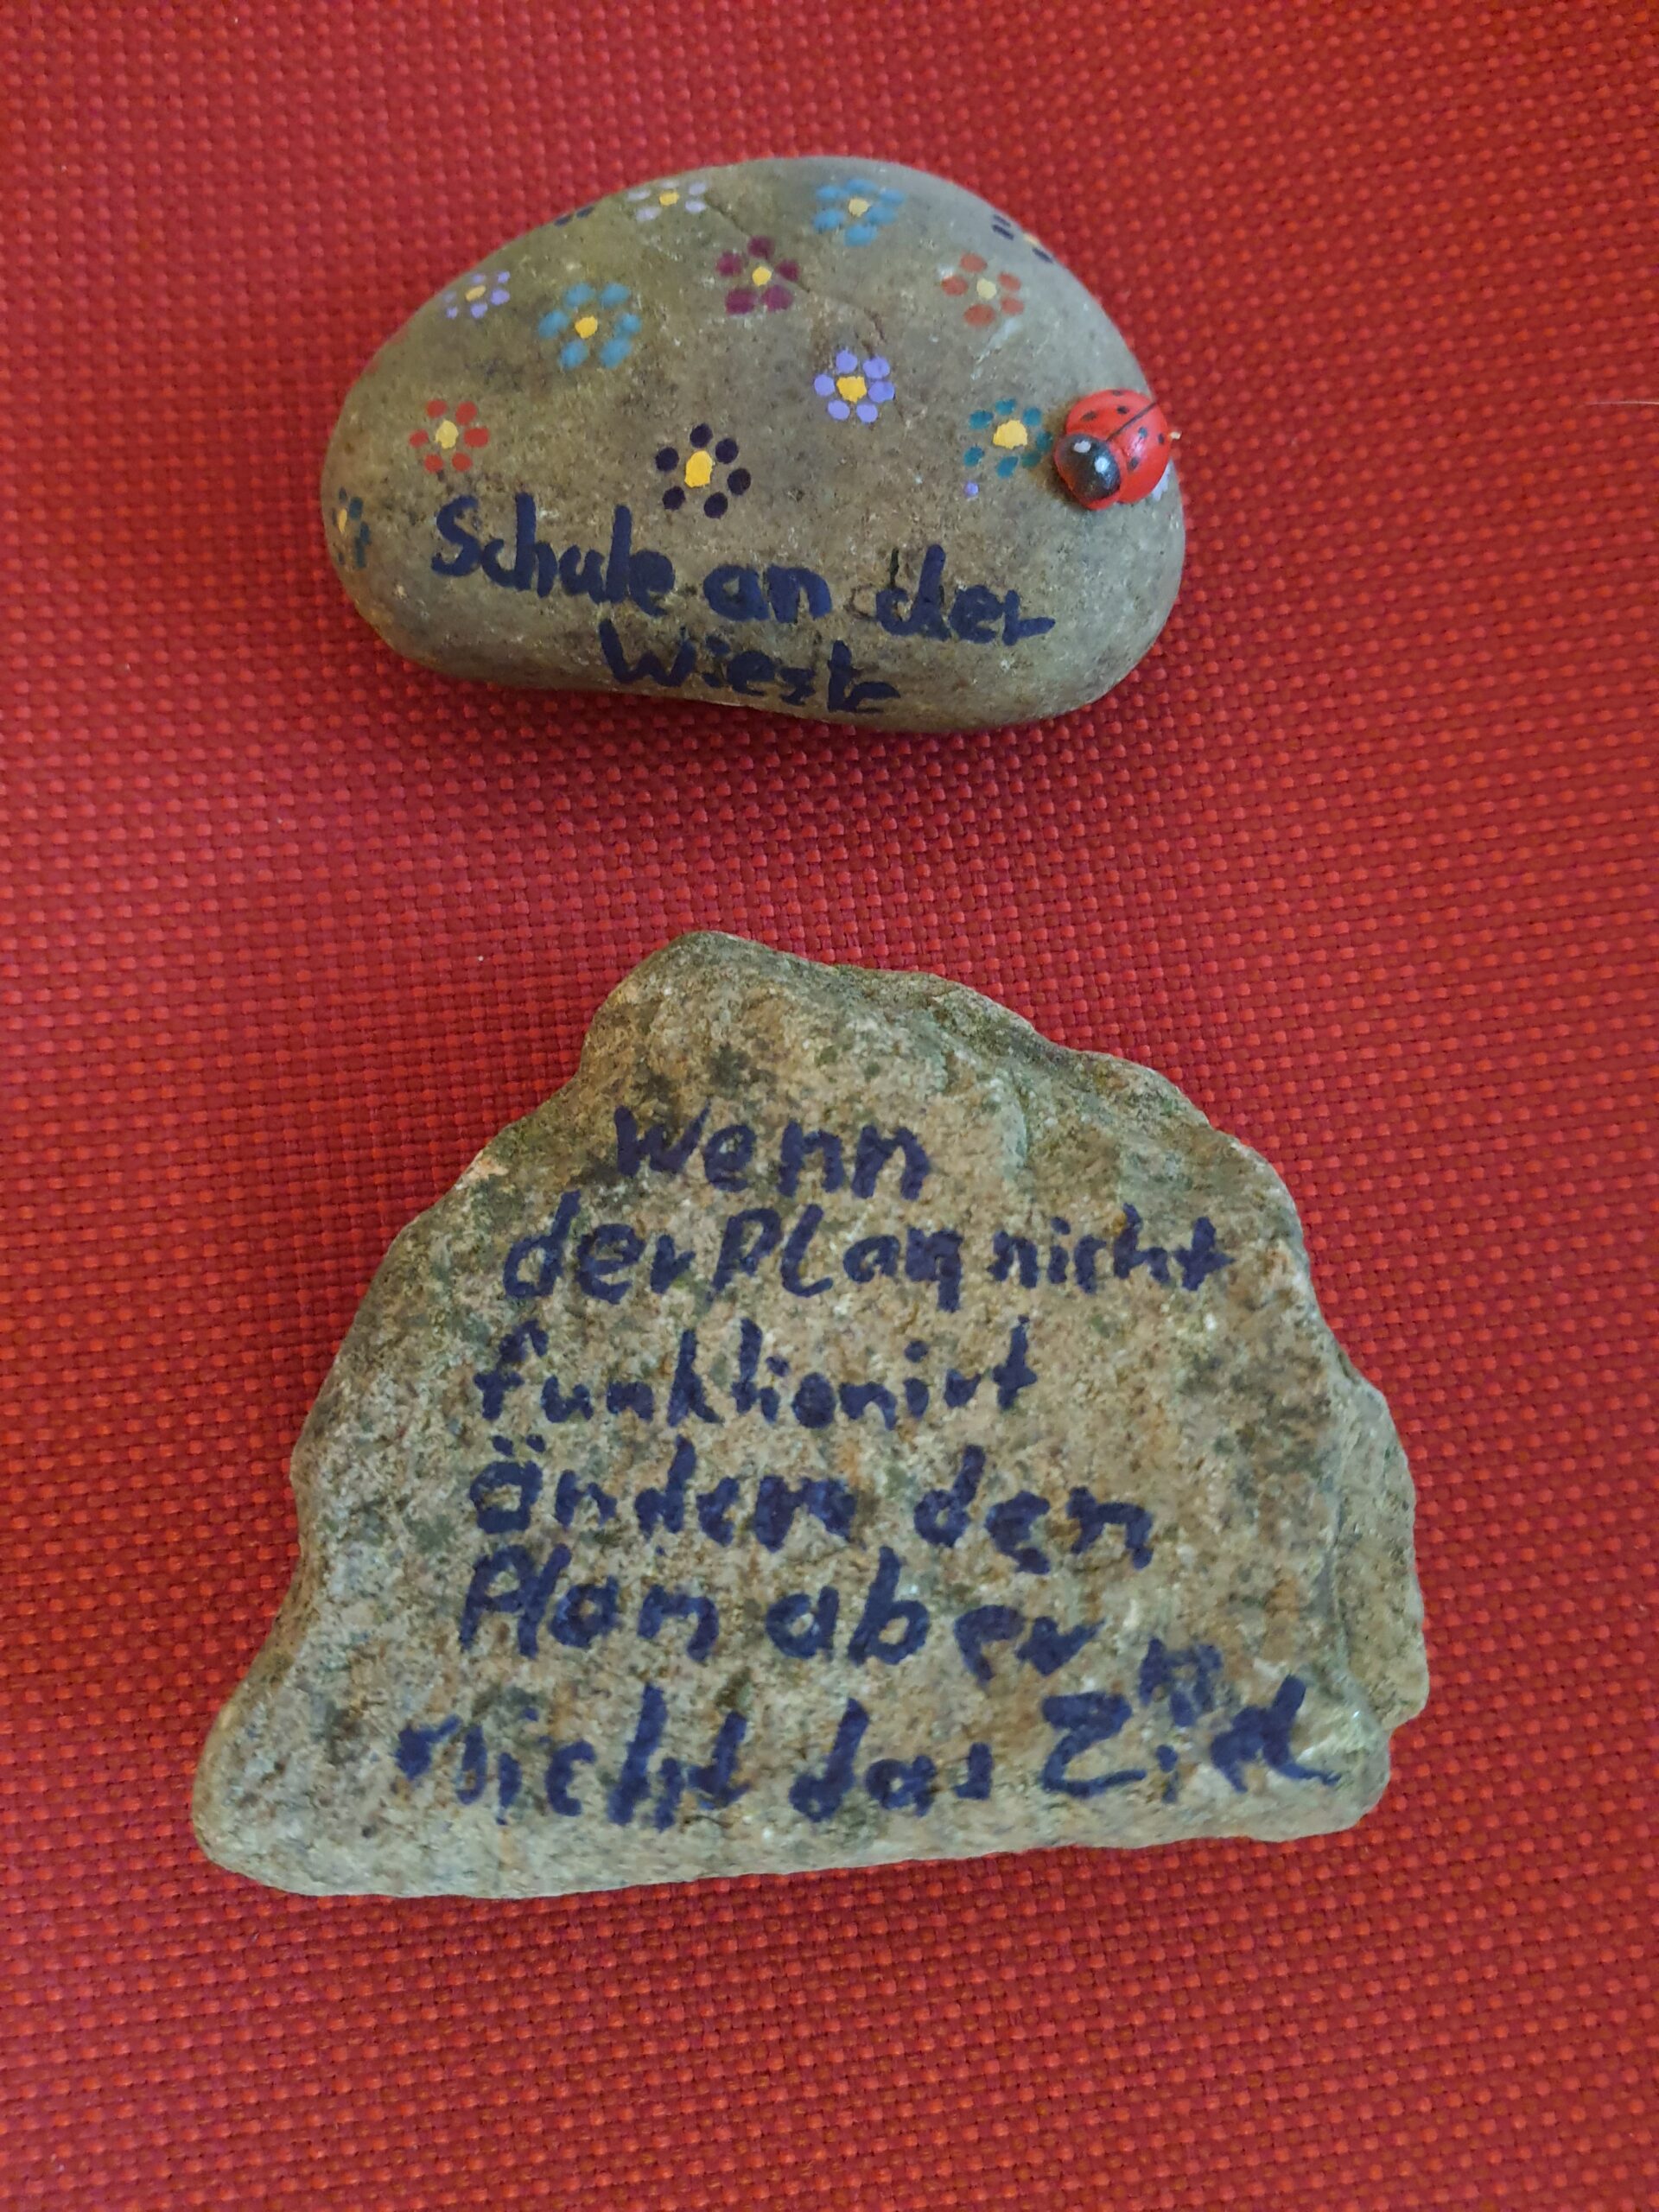 Schule an der
Wieste
wenn
der Plan nicht
funktionirt
ändere den
Plan aber
nicht das Ziel